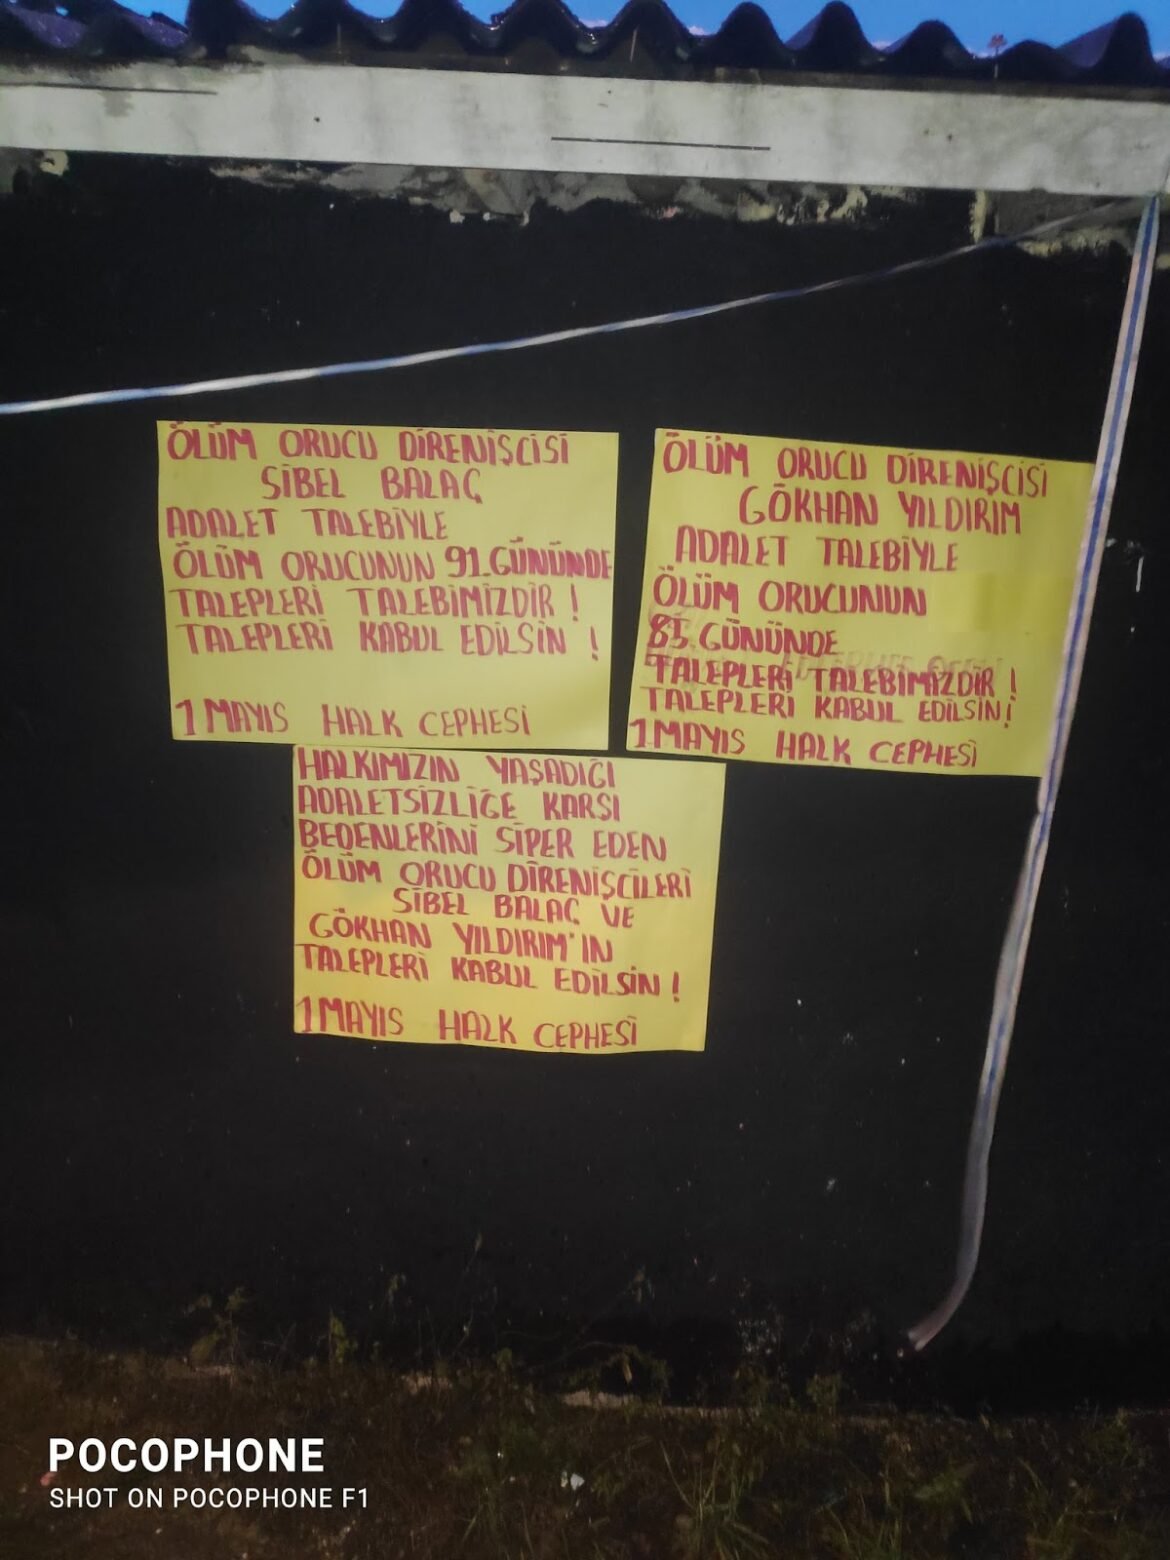 ÖLÜM ORUCU DİRENİŞCİSİ
SİBEL BALAÇ
ADALET TALEBİYLE
ÖLÜM ORUCUNUN 91.GÜNÜNDE
TALEPLERİ TALEBİMİZDİR !
TALEPLERİ KABUL EDİLSİN !
1 MAYIS HALK CEPHESİ
ÖLÜM ORUCU DİRENİŞCİSİ
GÖKHAN YILDIRIM
ADALET TALEBİYLE
ÖLÜM ORUCUNUN
85.GÜNÜNDE
TALEPLERİ TALEBİMİZDİR !
TALEPLERİ KABUL EDİLSİN !
1 MAYIS HALK CEPHESİ
HALKIMIZIN YAŞADIĞI
ADALETSİZLİĞE KARSI
BEDENLERİNİ SİPER EDEN
ÖLÜM ORUCU DİRENİŞCİLERİ
SİBEL BALAÇ VE
GÖKHAN YILDIRIM'IN
TALEPLERİ KABUL EDİLSİN !
1 MAYIS HALK CEPHESİ
POCOPHONE
SHOT ON POCOPHONE F1